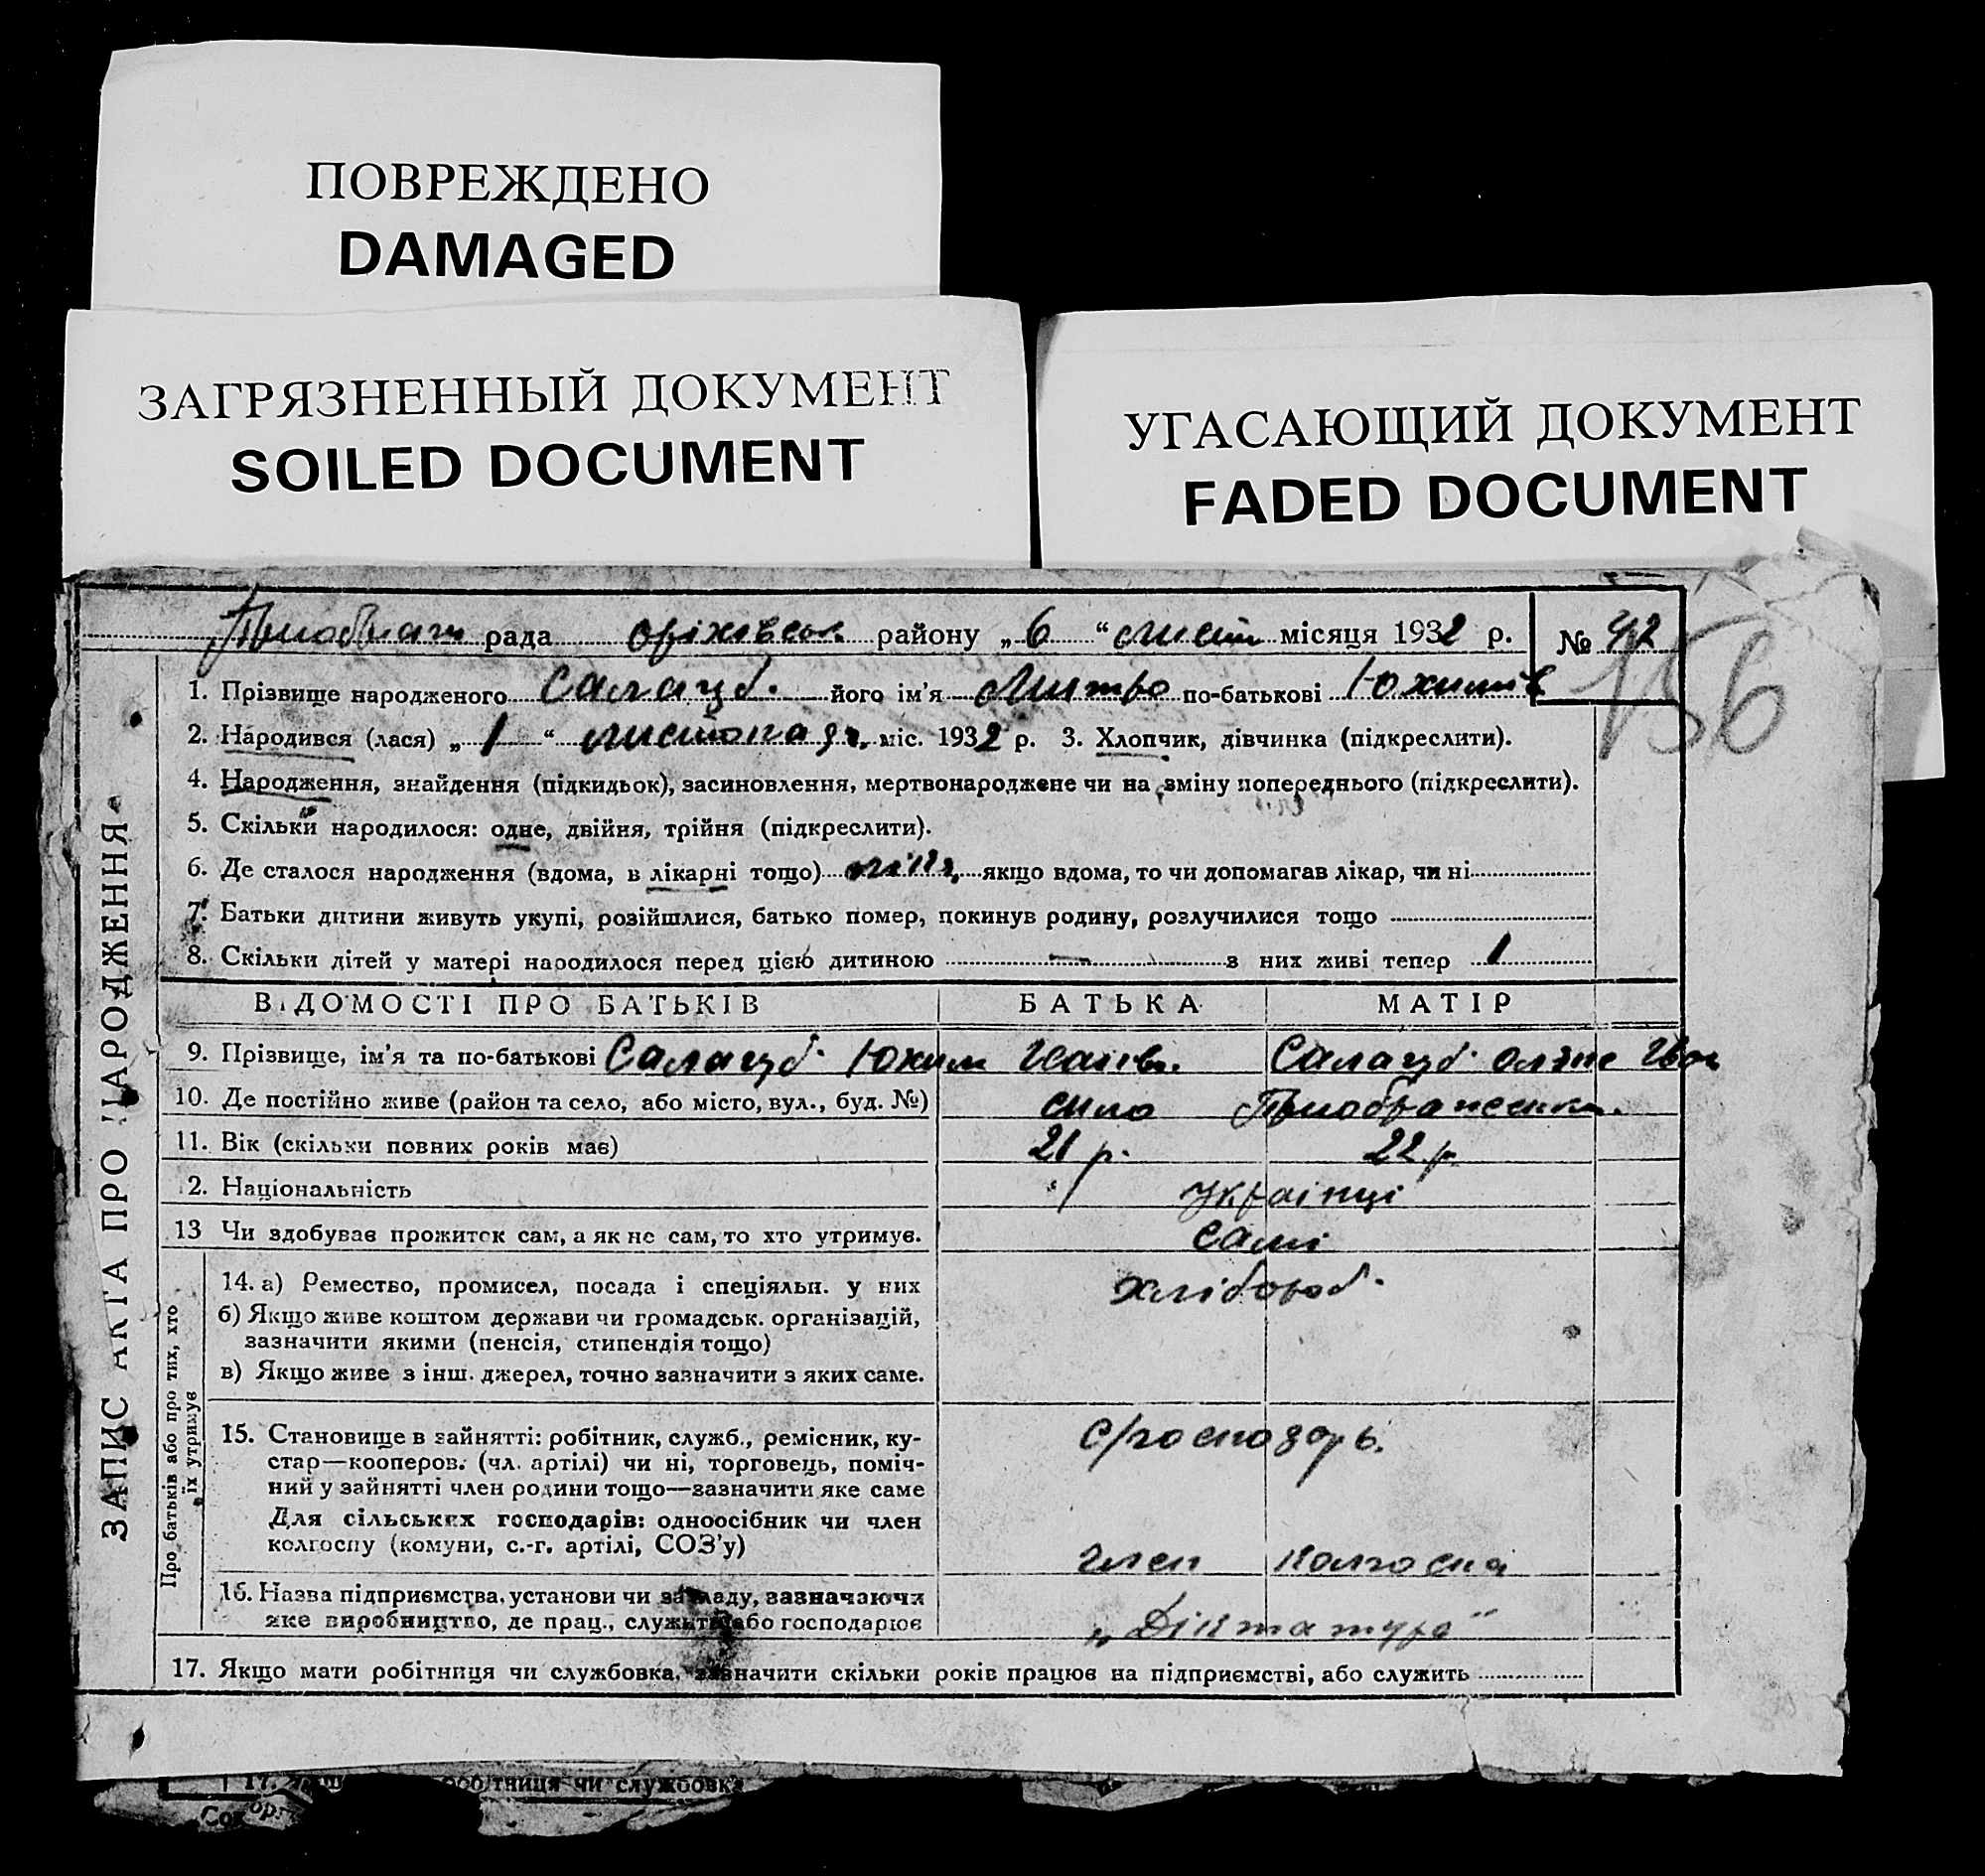 ПОВРЕЖДЕНО
DAMAGED
ЗАГРЯЗНЕННЫЙ ДОКУМЕНТ
SOILED DOCUMENT
УГАСАЮЩИЙ ДОКУМЕНТ
FADED DOCUMENT
рада оріхівськ. району „ 6 “ лист місяця 1932 р. № 42
156
1. Прізвище народженого Салацуб. його ім'я Митро по-батькові Юхимів
2. Народився (лася) „ 1 “ листопада міс. 1932 р. 3. Хлопчик, дівчинка (підкреслити).
4. Народження, знайдення (підкидьок), засиновлення, мертвонароджене чи на зміну попереднього (підкреслити).
5. Скільки народилося: одне, двійня, трійня (підкреслити).
6. Де сталося народження (вдома, в лікарні тощо) якщо вдома, то чи допомагав лікар, чи ні
7. Батьки дитини живуть укупі, розійшлися, батько помер, покинув родину, розлучилися тощо
8. Скільки дітей у матері народилося перед цією дитиною — з них живі тепер 1
ВІДОМОСТІ ПРО БАТЬКІВ БАТЬКА МАТІР
9. Прізвище, ім'я та по-батькові Салацуб Юхим Салацуб
10. Де постійно живе (район та село, або місто, вул., буд. №) село Приображенка.
11. Вік (скільки повних років має) 21 р. 22 р.
12. Національність Українці
13 Чи здобуває прожиток сам, а як не сам, то хто утримує. сами
14. а) Ремество, промисел, посада і спеціяльн. у них хлібороб.
б) Якщо живе коштом держави чи громадськ. організацій,
зазначити якими (пенсія, стипендія тощо)
в) Якщо живе з інш. джерел, точно зазначити з яких саме.
15. Становище в зайнятті: робітник, служб., ремісник, ку-
стар—кооперов. (чл. артілі) чи ні, торговець, поміч-
ний у зайнятті член родини тощо—зазначити яке саме
с/господарь.
Для сільських господарів: одноосібник чи член
колгоспу (комуни, с.-г. артілі, СОЗ'у)
член колгоспа
16. Назва підприємства, установи чи закладу, зазначаючи
яке виробництво, де прац., служить або господарює
„Діктатура"
17. Якщо мати робітниця чи службовка, зазначити скільки років працює на підприємстві, або служить
ЗАПИС АКТА ПРО НАРОДЖЕННЯ
Про батьків або про тих, хто
їх утримує
чи службовка